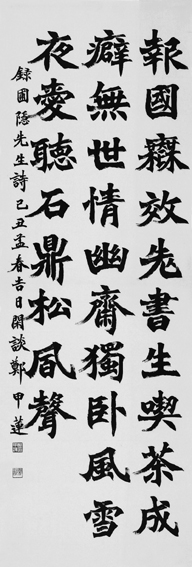 報國橆效老書生喫茶成
癖無世情幽齋獨臥風雪
夜愛聽石鼎松凬聲
録圃隱先生詩己丑孟春吉日閑談鄭甲蓮